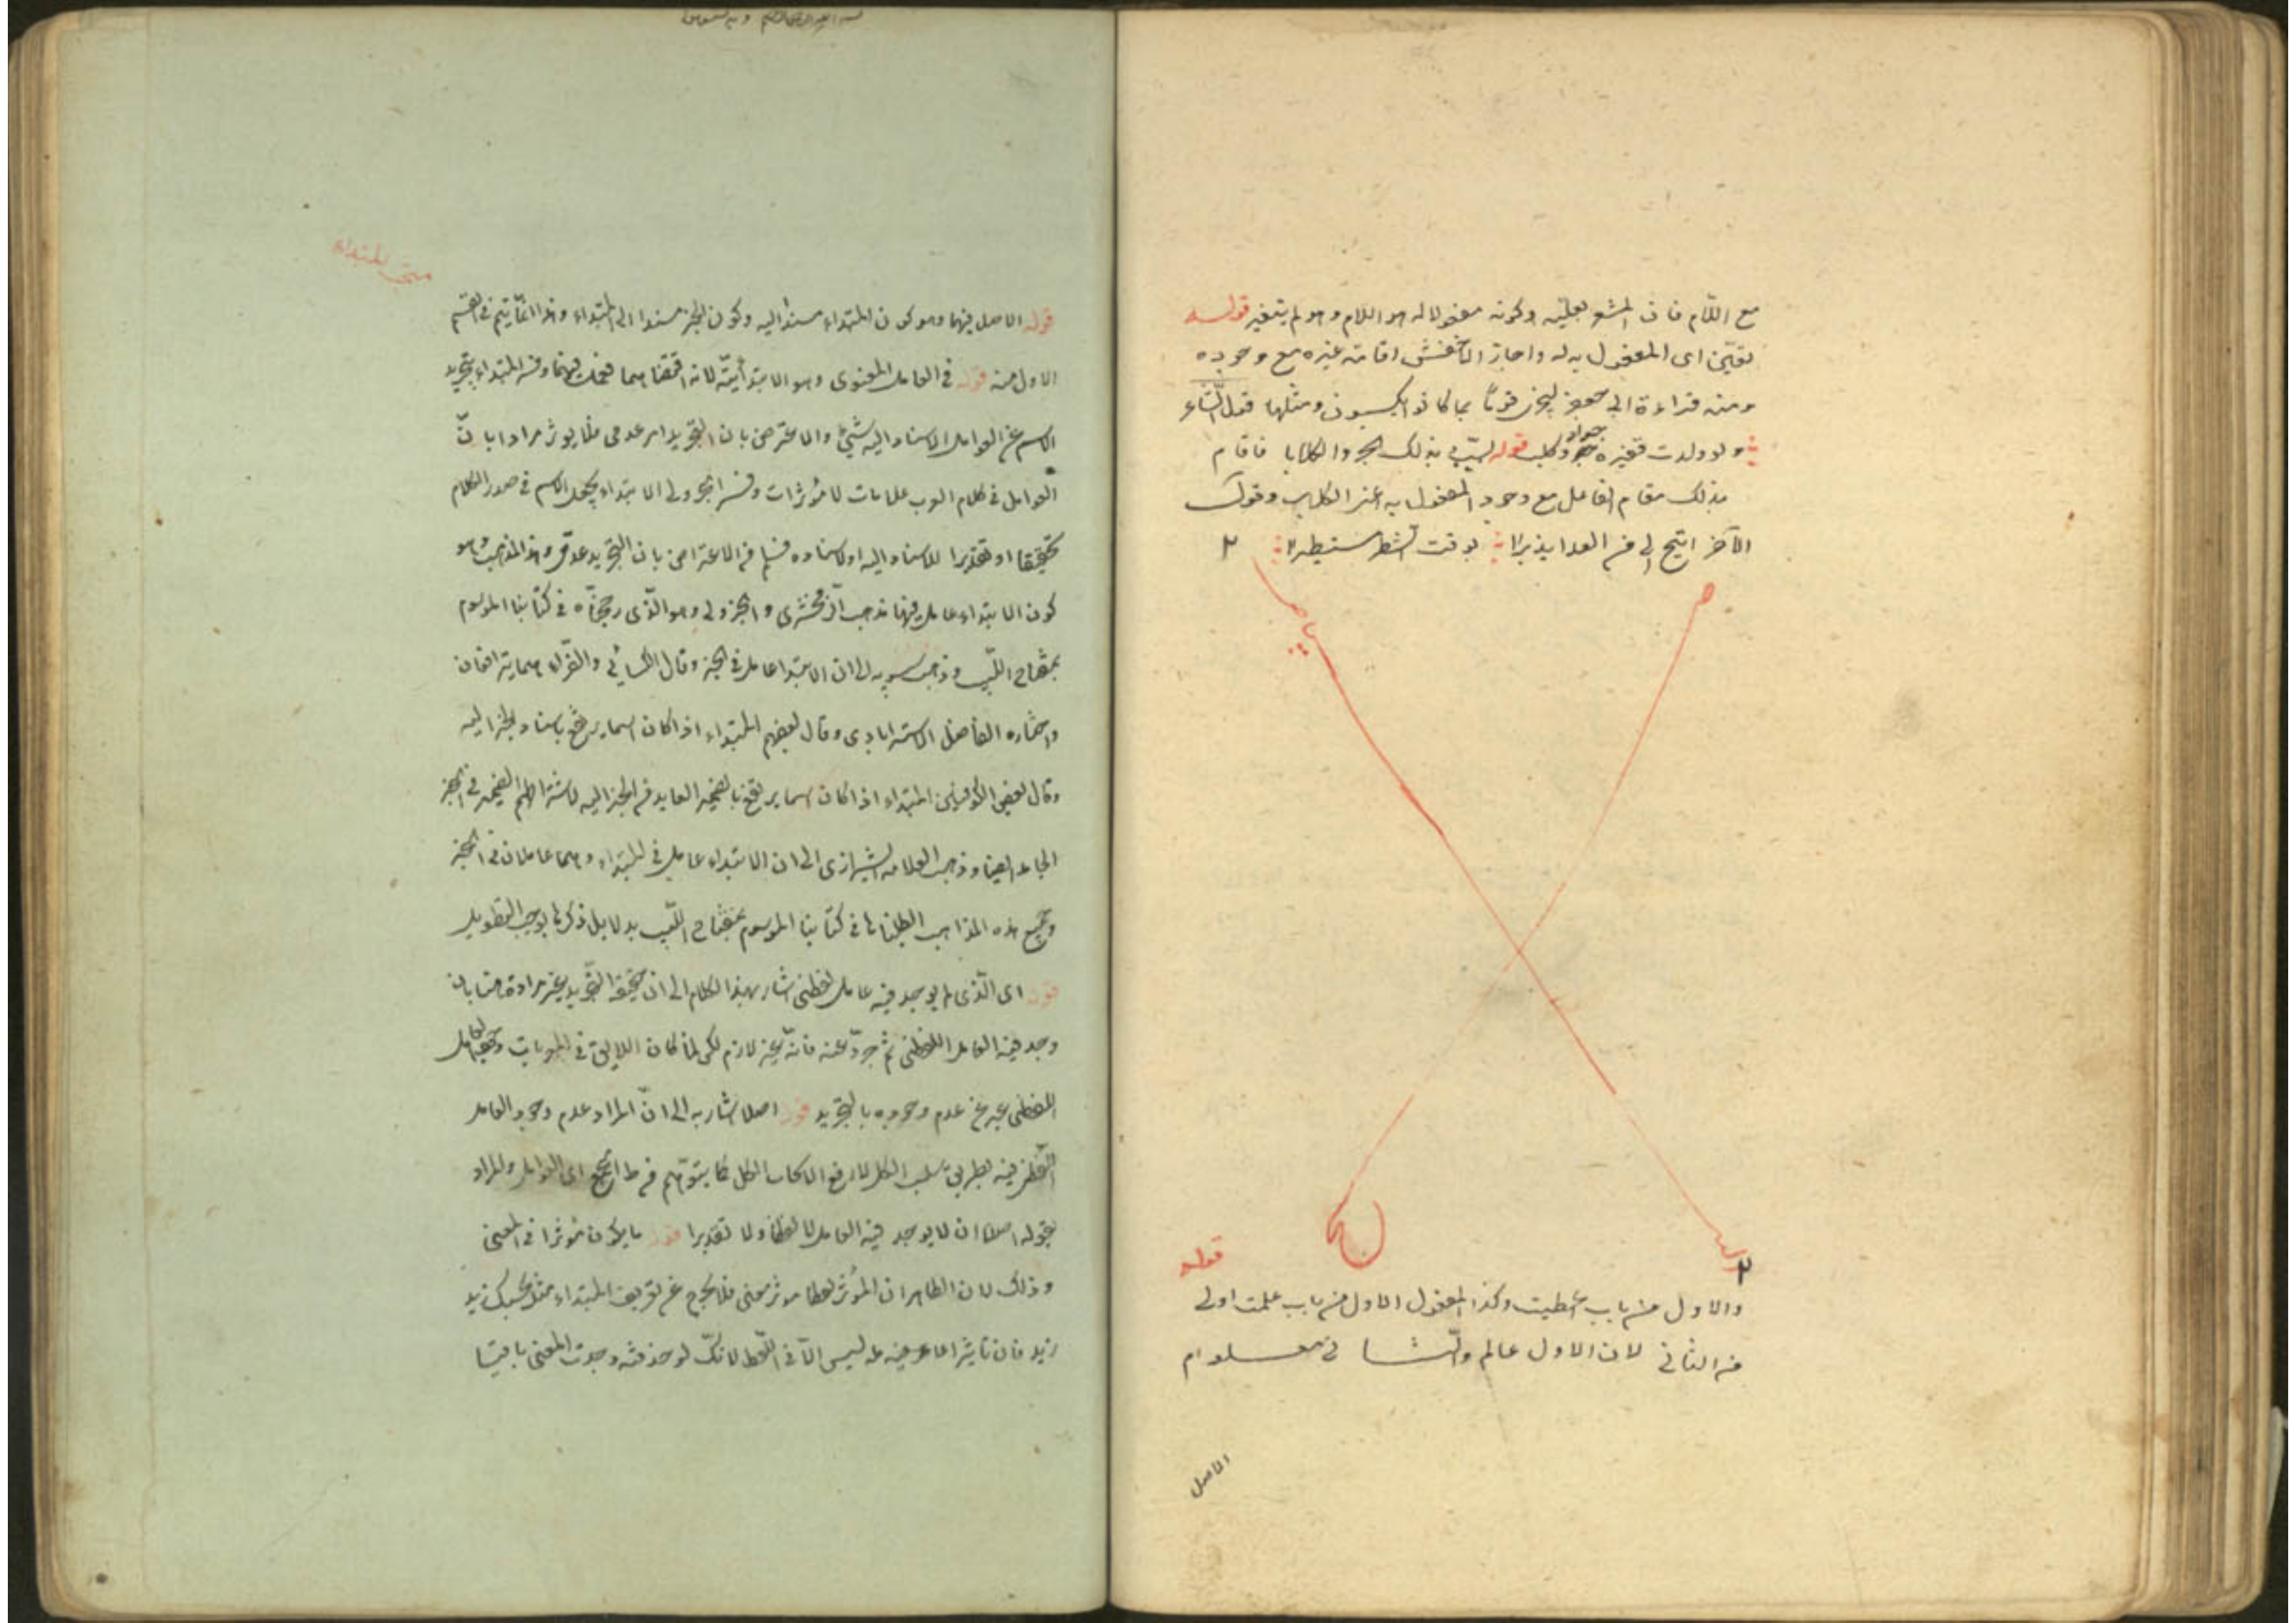 مع اللّام فان المشعر بعليّته وكونه مفعولا له هو اللام وهو لم يتغير قوله
تعيّن اى المفعول به له واجاز الاخفش اقامة غيره مع وجوده
ومنه قراءة ابى جعفر ليجزى قوما بما كانوا يكسبون ومثلها قول الشاعر
ولو ولدت قفيرة جرو كلب قوله لسبّ بذلك الجرو الكلابا فاقام
بذلك مقام الفاعل مع وجود المفعول به اعنى الكلاب وقول
الآخر اتيح لى من العدا نذيرا
بياض
صح
قوله
والاول من باب اعطيت وكذا المفعول الاول من باب علمت اولى
من الثانى لان الاول عالم والثانى معلوم
الاصل
مبحث المبتداء
قوله الاصل فيهما وهو كون المبتداء مسندا اليه وكون الخبر مسندا الى المبتداء وهذا انما يتم فى القسم
الاول منه قوله فى العامل المعنوى وهو الابتدائية لانه اقتضاهما فعمل فيهما وفسر المبتداء بتجريد
الاسم عن العوامل للاسناد اليه شئ والاعترض بان التجريد امر عدمى فلا يؤثر مرادا بان
العوامل فى كلام العرب علامات لا مؤثرات وفسر الجزولى الابتداء بجعل الاسم فى صدر الكلام
تحقيقا او تقديرا للاسناد اليه او لاسناده فسلم من الاعتراض بان التجريد عدمى وهذا المذهب وهو
كون الابتداء عامل فيهما مذهب الزمخشرى والجزولى وهو الذى رجحناه فى كتابنا الموسوم
بمفتاح اللبيب وذهب سيبويه الى ان الابتدا عامل فى الخبر وقال الكسائى والفراء هما يترافعان
واختاره الفاضل الاسترابادى وقال بعضهم المبتداء اذا كان اسما يرتفع باسناد الخبر اليه
وقال بعض الكوفيين المبتداء اذا كان اسما يرتفع بالضمير العايد من الخبر اليه لاشتراطهم الضمير فى الخبر
الجامد ايضا وذهب العلامه الشيرازى الى ان الابتداء عامل فى المبتداء وهما عاملان فى الخبر
وجميع هذه المذاهب ابطلناها فى كتابنا الموسوم بمفتاح اللبيب بدلايل ذكرها يوجب التطويل
قوله اى الذى لم يوجد فيه عامل لفظى اشار بهذا الكلام الى ان حقيقة التجريد غير مرادة هنا بان
وجد فيه العامل اللفظى ثم جرد عنه فانه غير لازم لكن لما كان اللايق فى المعربات وجود العامل
اللفظى عبر عن عدم وجوده بالتجريد قوله اصلا اشار به الى ان المراد عدم وجود العامل
اللفظى فيه بطريق سلب الكل لا رفع الايجاب الكلى كما يتوهم من ظاهر الجمع اى العوامل والمراد
بقوله اصلا ان لا يوجد فيه العامل لا لفظا ولا تقديرا قوله ما يكون مؤثرا فى المعنى
وذلك لان الظاهر ان المؤثر لفظا مؤثر معنى فلا يخرج عن تعريف المبتداء مثل بحسبك زيد
زيد فان تاثير العامل فيه ليس الا فى اللفظ لانك لو حذفته وجدت المعنى باقيا